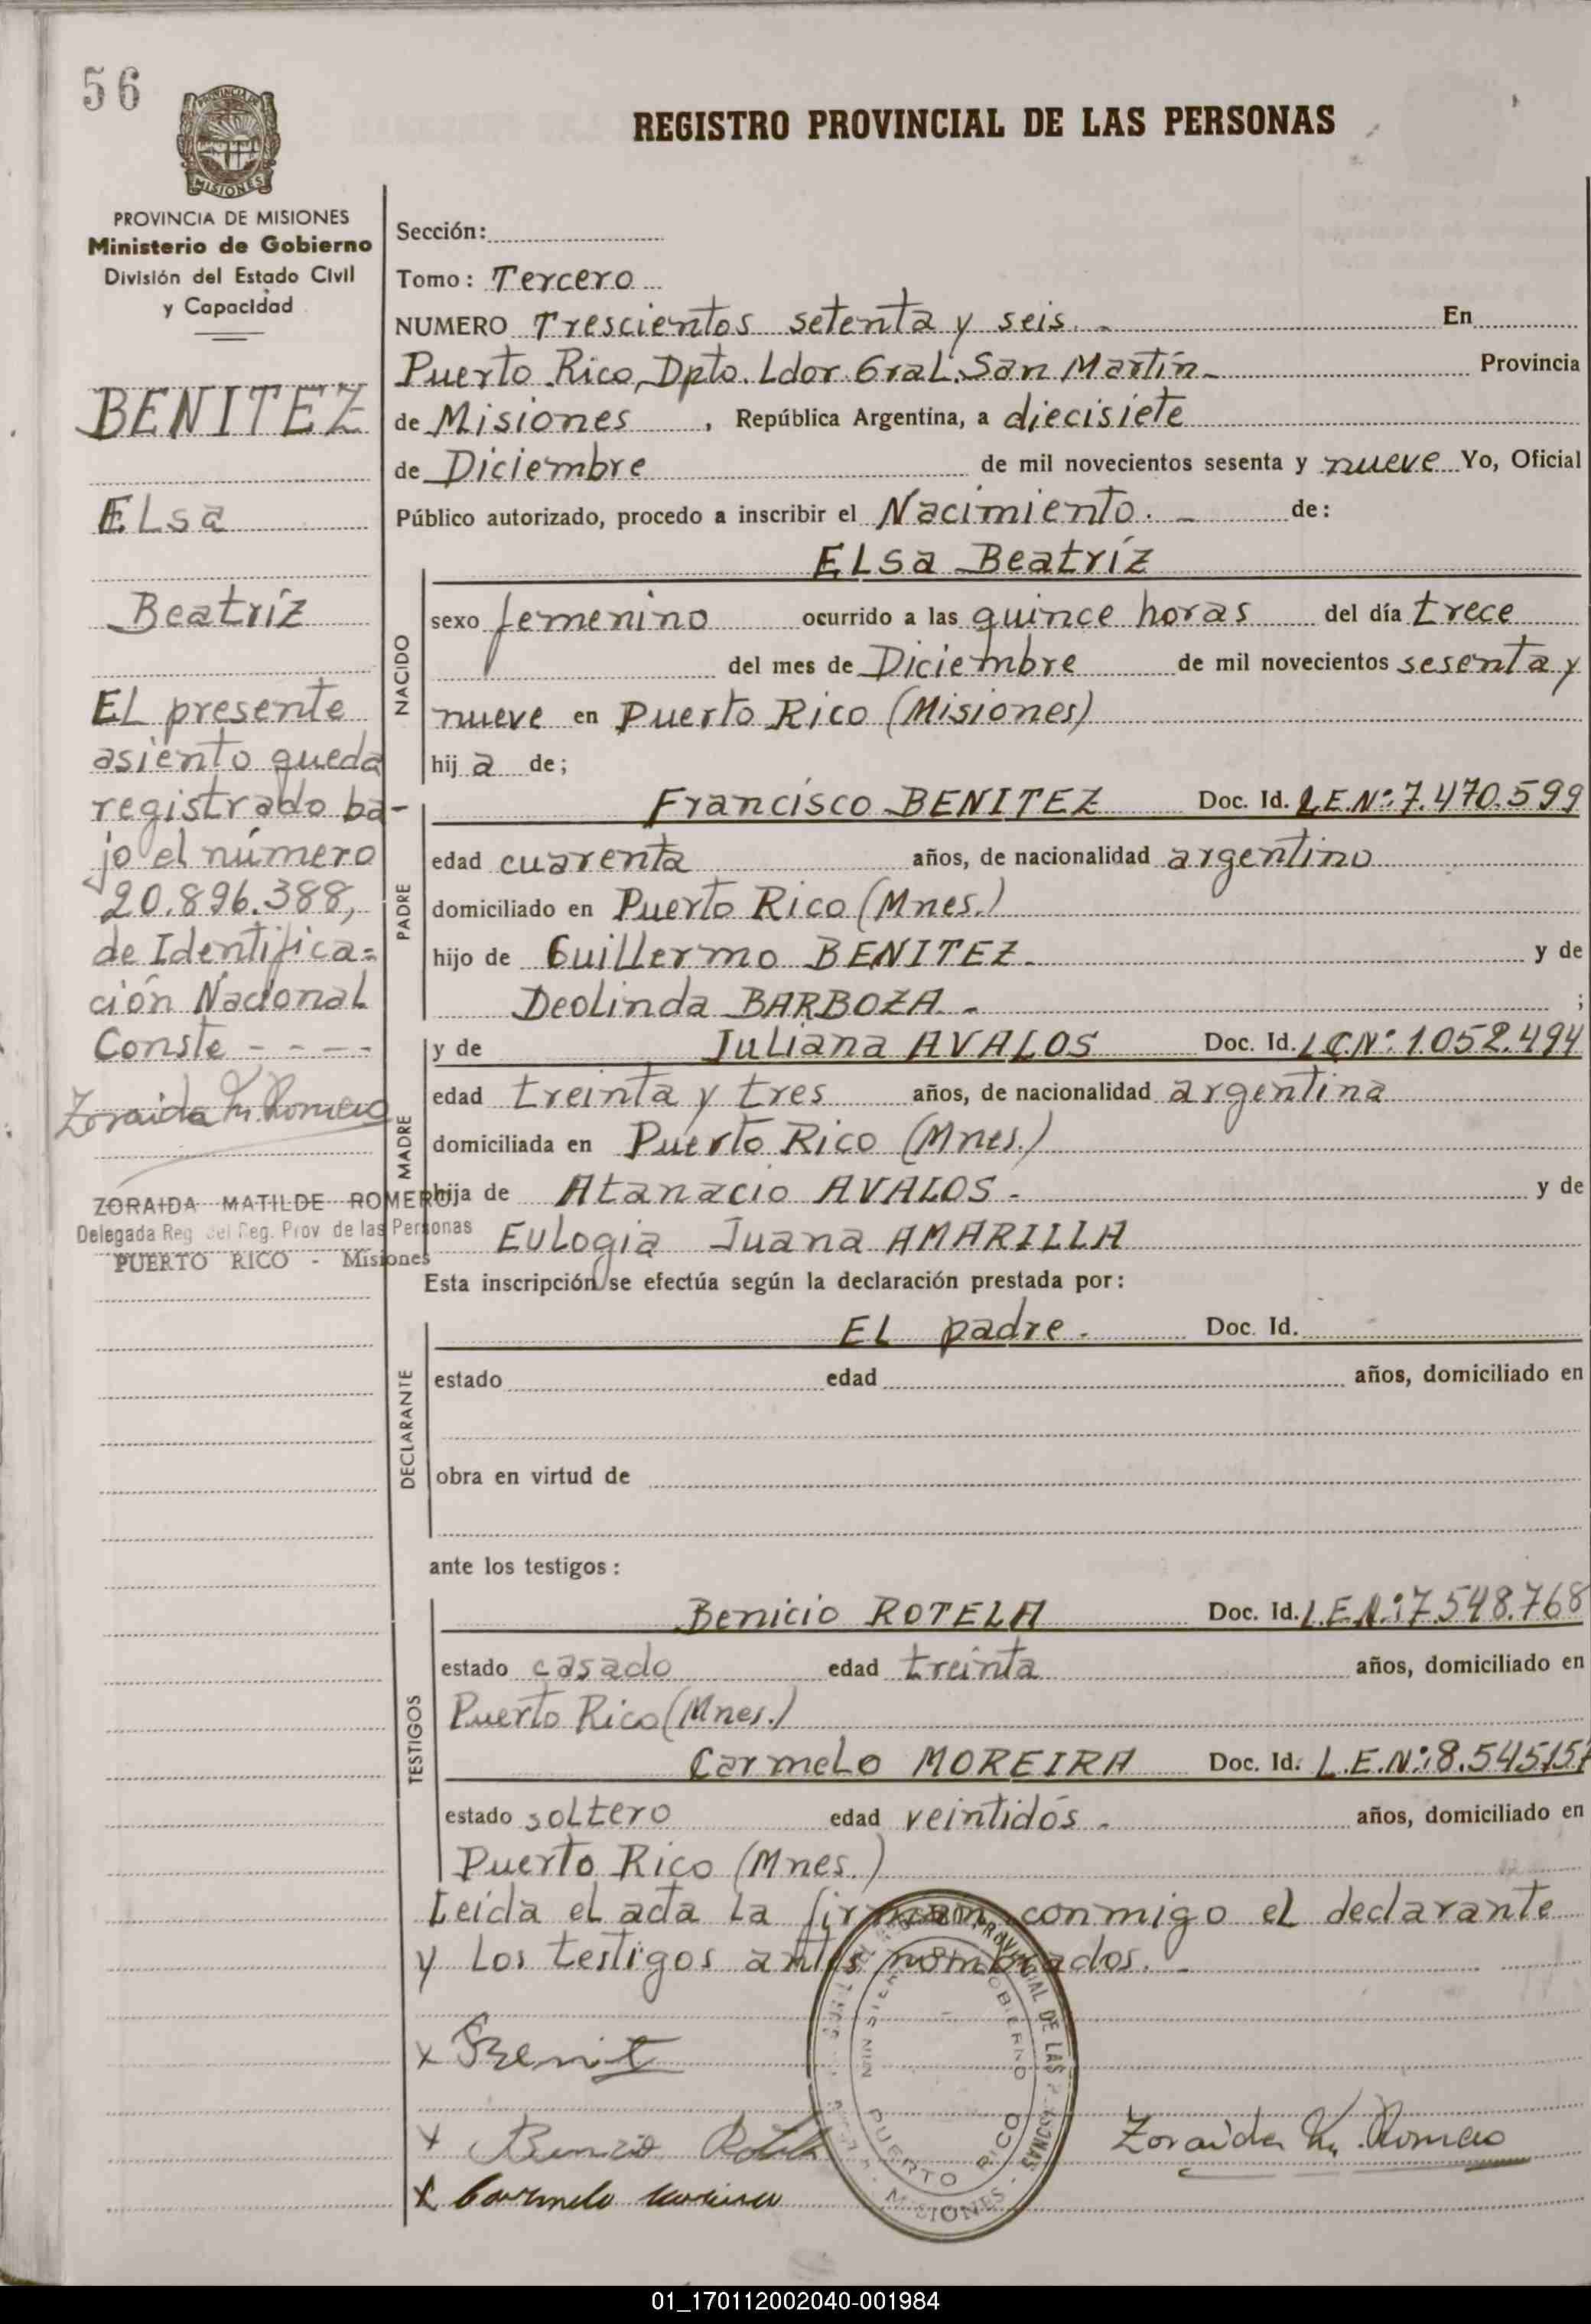 56
PROVINCIA DE MISIONES
Ministerio de Gobierno
División del Estado Civil
y Capacidad
BENITEZ
Elsa
Beatríz
El presente
asiento queda
registrado ba-
jo el número
20.896.388,
de Identifica=
ción Nacional
Conste - - - -
Zoraida M. Romero
ZORAIDA MATILDE ROMERO
Delegada Reg. del Reg. Prov de las Personas
PUERTO RICO - Misiones
REGISTRO PROVINCIAL DE LAS PERSONAS
Sección:
Tomo: Tercero
NUMERO Trescientos setenta y seis. - En
Puerto Rico, Dpto. Ldor. Gral. San Martín - Provincia
de Misiones, República Argentina, a diecisiete
de Diciembre de mil novecientos sesenta y nueve Yo, Oficial
Público autorizado, procedo a inscribir el Nacimiento. - de:
Elsa Beatríz
NACIDO
sexo femenino ocurrido a las quince horas del día trece
del mes de Diciembre de mil novecientos sesenta y
nueve en Puerto Rico (Misiones)
hija de;
PADRE
Francisco BENITEZ Doc. Id. L.E.Nº: 7.470.599
edad cuarenta años, de nacionalidad argentino
domiciliado en Puerto Rico (Mnes.)
hijo de Guillermo BENITEZ - y de
Deolinda BARBOZA. - ;
MADRE
y de Juliana AVALOS Doc. Id. L.C.Nº: 1.052.494
edad treinta y tres años, de nacionalidad argentina
domiciliada en Puerto Rico (Mnes.)
hija de Atanacio AVALOS - y de
Eulogia Juana AMARILLA
Esta inscripción se efectúa según la declaración prestada por:
DECLARANTE
El padre. Doc. Id.
estado edad años, domiciliado en
obra en virtud de
ante los testigos:
TESTIGOS
Benicio ROTELA Doc. Id. L.E.Nº: 7.548.768
estado casado edad treinta años, domiciliado en
Puerto Rico (Mnes.)
Carmelo MOREIRA Doc. Id: L.E.Nº: 8.545.157
estado soltero edad veintidós - años, domiciliado en
Puerto Rico (Mnes.)
Leída el acta la firman conmigo el declarante
y los testigos antes nombrados. -
x
x Benicio Rotela
x Carmelo
Zoraida M. Romero
PROVINCIAL DE LAS PERSONAS
MINISTERIO GOBIERNO
PUERTO RICO
MISIONES
01_170112002040-001984